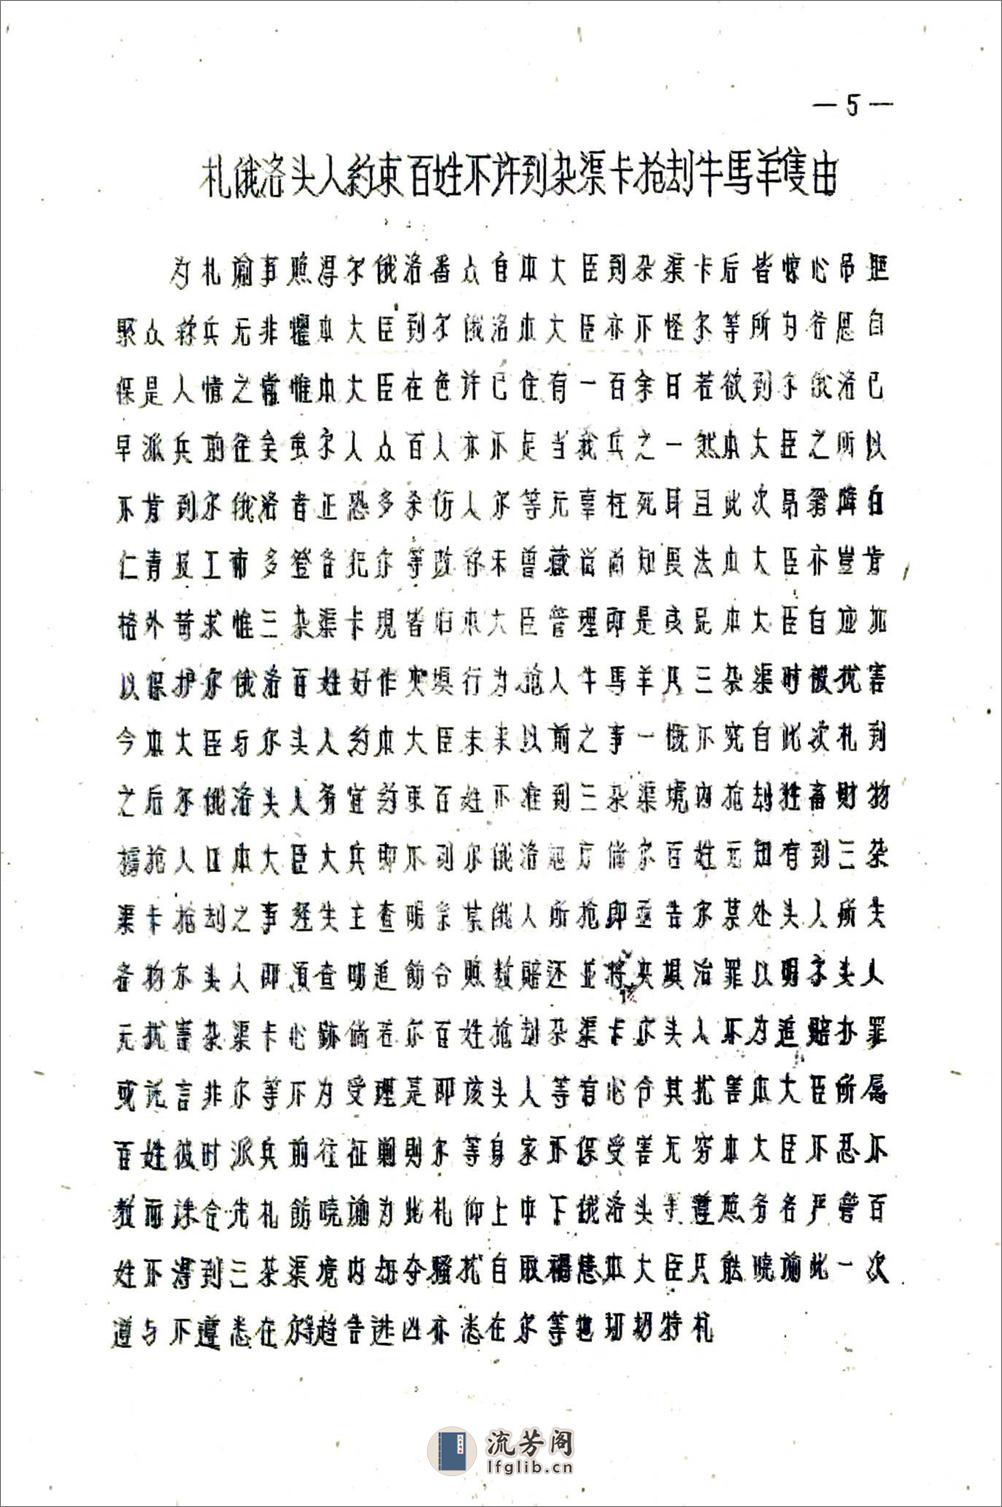 —5—
札俄洛头人約束百姓不许到杂渠卡抢刼牛馬羊隻由
为札諭事照得尔俄洛番众自本大臣到杂渠卡后皆惊心吊胆
聚众称兵无非懼本大臣到尔俄洛本大臣亦不怪尔等所为各思自
保是人情之常惟本大臣在色许已住有一百余日若欲到尔俄洛已
早派兵前往矣虽尔人众百人亦不足当我兵之一然本大臣之所以
不肯到尔俄洛者正恐多杀伤人尔等无辜枉死耳且此次昂翁降白
仁青及工布多登各犯尔等既称未曾藏尚知畏法本大臣亦豈肯
格外苛求惟三杂渠卡現皆归本大臣管理即是我民本大臣自应加
以保护尔俄洛百姓好作夹坝行为抢人牛馬羊只三杂渠时被扰害
今本大臣与尔头人約本大臣未来以前之事一慨不究自此次札到
之后尔俄洛头人务宜約束百姓不准到三杂渠境内抢劫牲畜財物
掳抢人口本大臣大兵即不到尔俄洛地方倘尔百姓无知有到三杂
渠卡抢劫之事经失主查明系某俄人所抢即至告尔某处头人所失
各物尔头人即须查明追飭令照数賠还並将夹坝治罪以明尔头人
无扰害杂渠卡心跡倘若尔百姓抢劫杂渠卡尔头人不为追赔办罪
或託言非尔等不为受理是即该头人等有心令其扰害本大臣所属
百姓彼时派兵前往征剿則尔等身家不保受害无穷本大臣不忍不
教而誅合先札飭晓諭为此札仰上中下俄洛头遵照务各严管百
姓不得到三杂渠境内劫夺騷扰自取禍患本大臣只能晓諭此一次
遵与不遵悉在尔等趋吉逃凶亦悉在尔等也切切特札
流芳阁
lfglib.cn